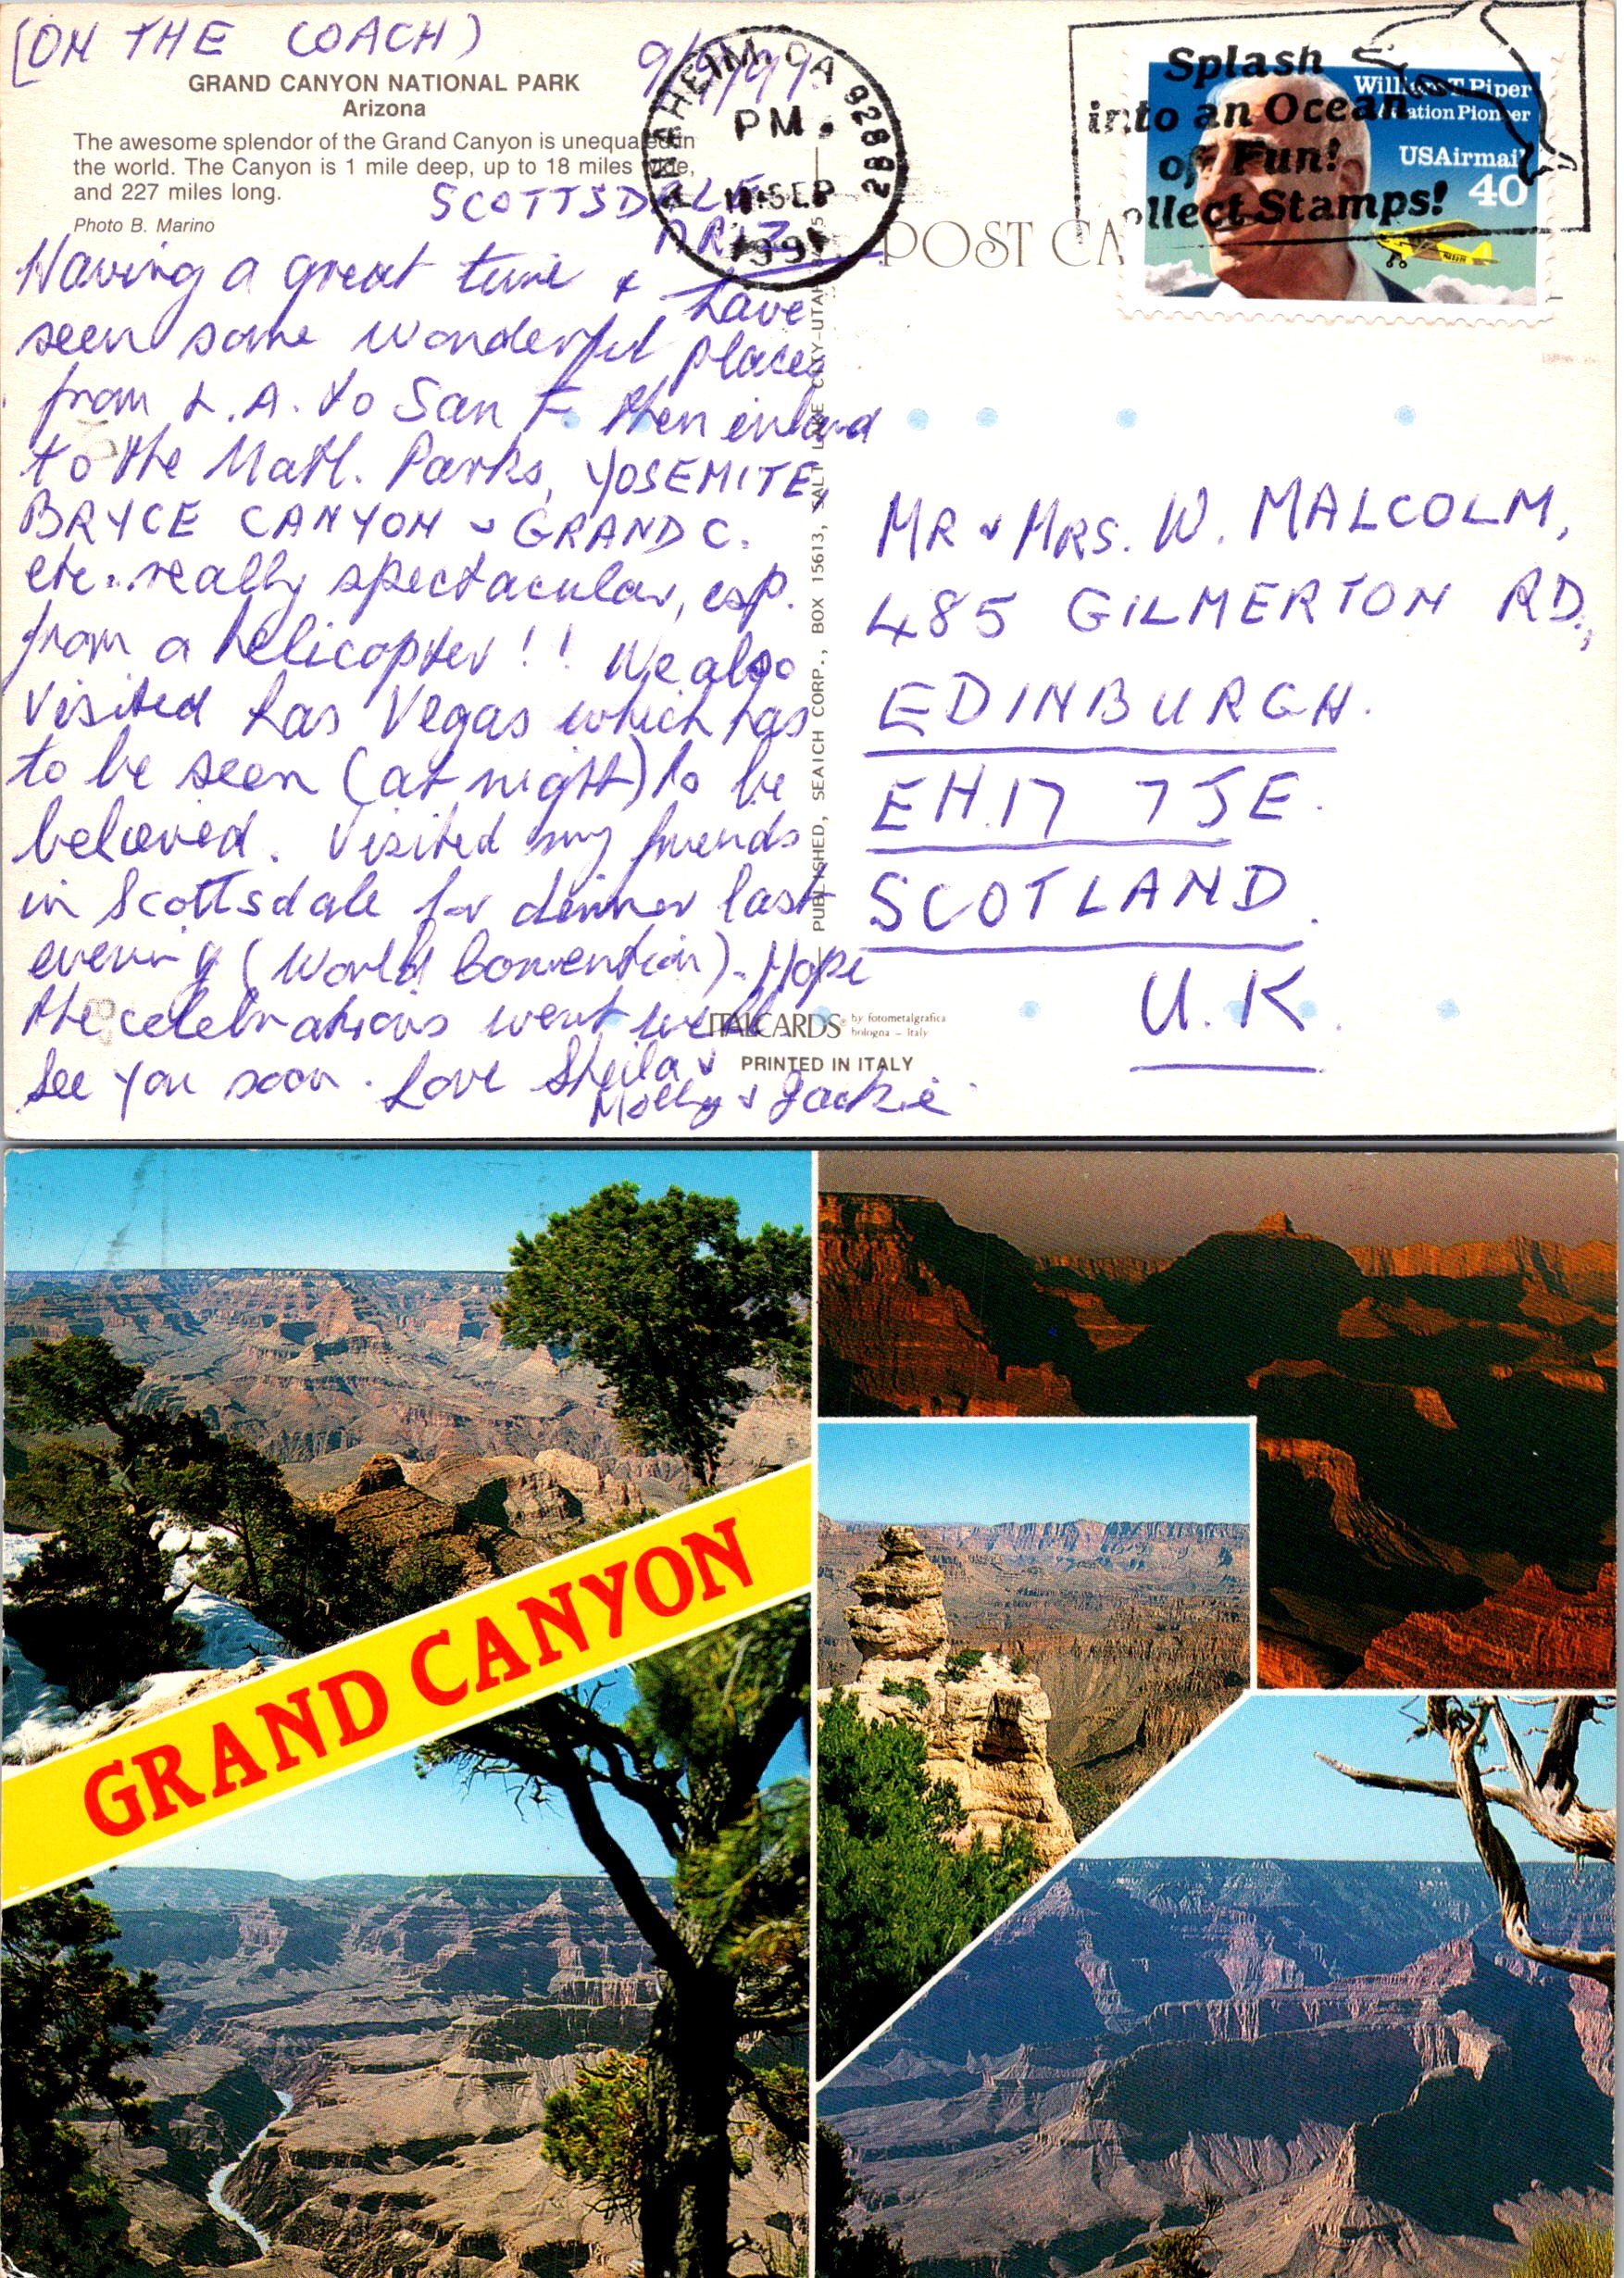 (ON THE COACH)
GRAND CANYON NATIONAL PARK
Arizona
The awesome splendor of the Grand Canyon is unequaled in
the world. The Canyon is 1 mile deep, up to 18 miles wide,
and 227 miles long.
Photo B. Marino
SCOTTSDALE
ARIZ.
Having a great time & have
seen some wonderful places
from L.A. to San F. then inland
to the Natl. Parks, YOSEMITE,
BRYCE CANYON & GRAND C.
etc. really spectacular, esp.
from a helicopter!! We also
visited Las Vegas which has
to be seen (at night) to be
believed. Visited my friends
in Scottsdale for dinner last
evening (World Convention). Hope
the celebrations went well
See you soon. Love Sheila &
Molly & Jackie
ANAHEIM, CA 92882
PM
11 SEP
POST CA
Splash
into an Ocean
of Fun!
ollect Stamps!
William T. Piper
Aviation Pioneer
USAirmail
40
PUBLISHED, SEAICH CORP., BOX 15613, SALT LAKE CITY-UTAH
MR & MRS. W. MALCOLM,
485 GILMERTON RD.,
EDINBURGH.
EH.17 7JE.
SCOTLAND.
U.K.
ITALCARDS by fotometalgrafica
bologna - Italy
PRINTED IN ITALY
GRAND CANYON